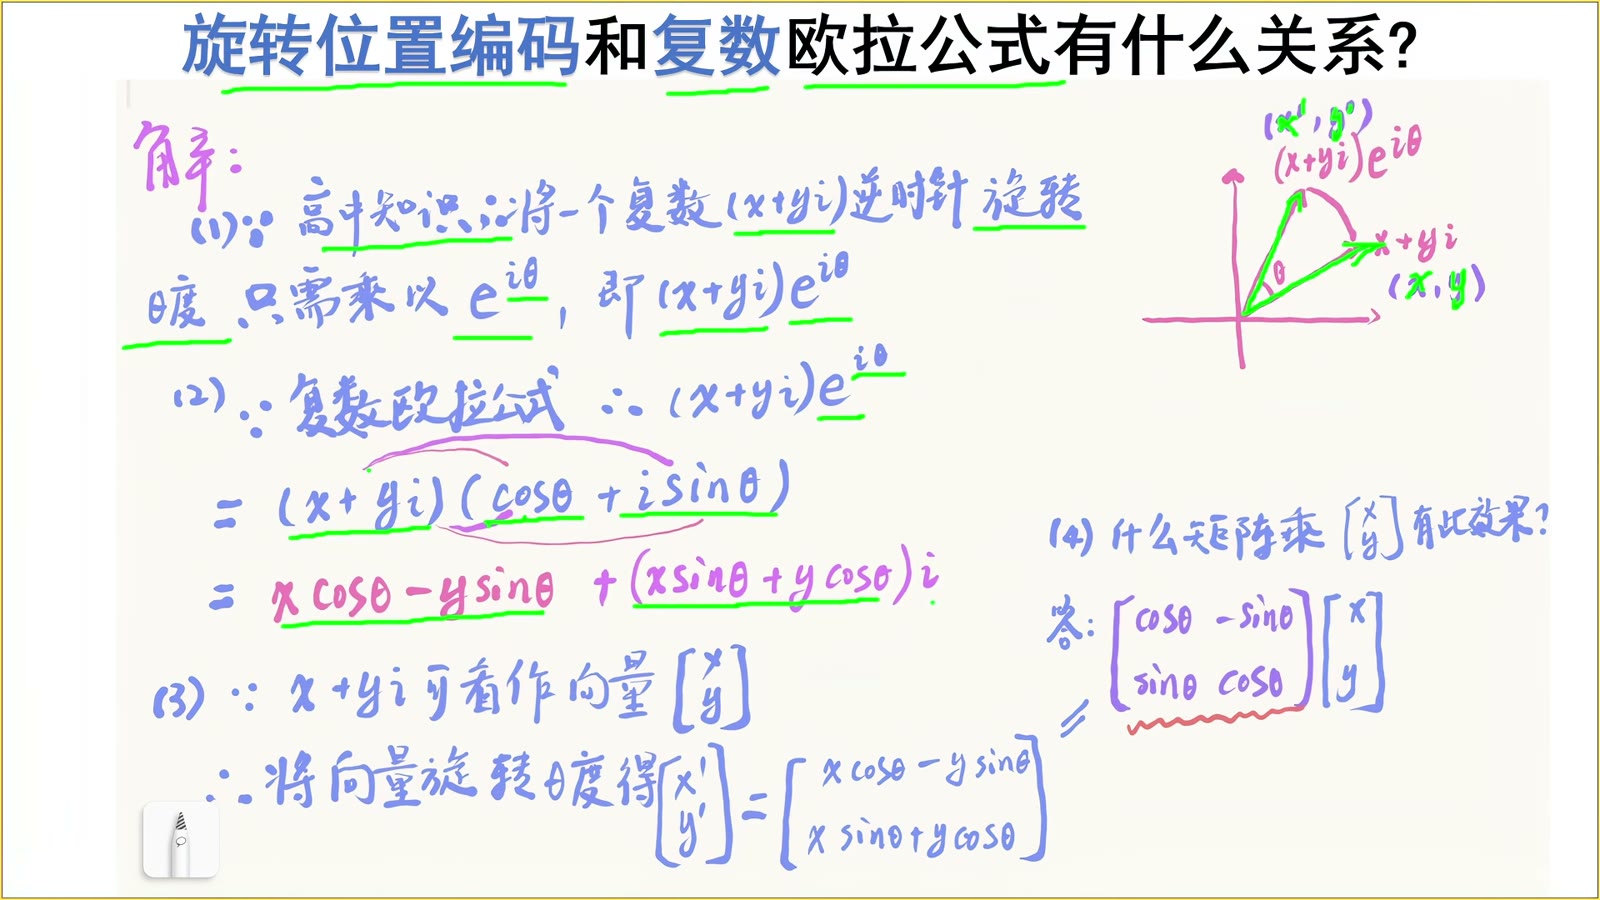 旋转位置编码和复数欧拉公式有什么关系?
解:
(1)∵高中知识∴将一个复数(x+yi)逆时针旋转
θ度只需乘以e^{iθ}, 即(x+yi)e^{iθ}
(2)∵复数欧拉公式 ∴(x+yi)e^{iθ}
=(x+yi)(cosθ+isinθ)
=xcosθ-ysinθ+(xsinθ+ycosθ)i
(3)∵x+yi可看作向量[x y]
∴将向量旋转θ度得[x' y']=[xcosθ-ysinθ xsinθ+ycosθ]
(x', y')
(x+yi)e^{iθ}
x+yi
θ
(x,y)
(4)什么矩阵乘[x y]有此效果?
答:[cosθ -sinθ
sinθ cosθ][x y]
=